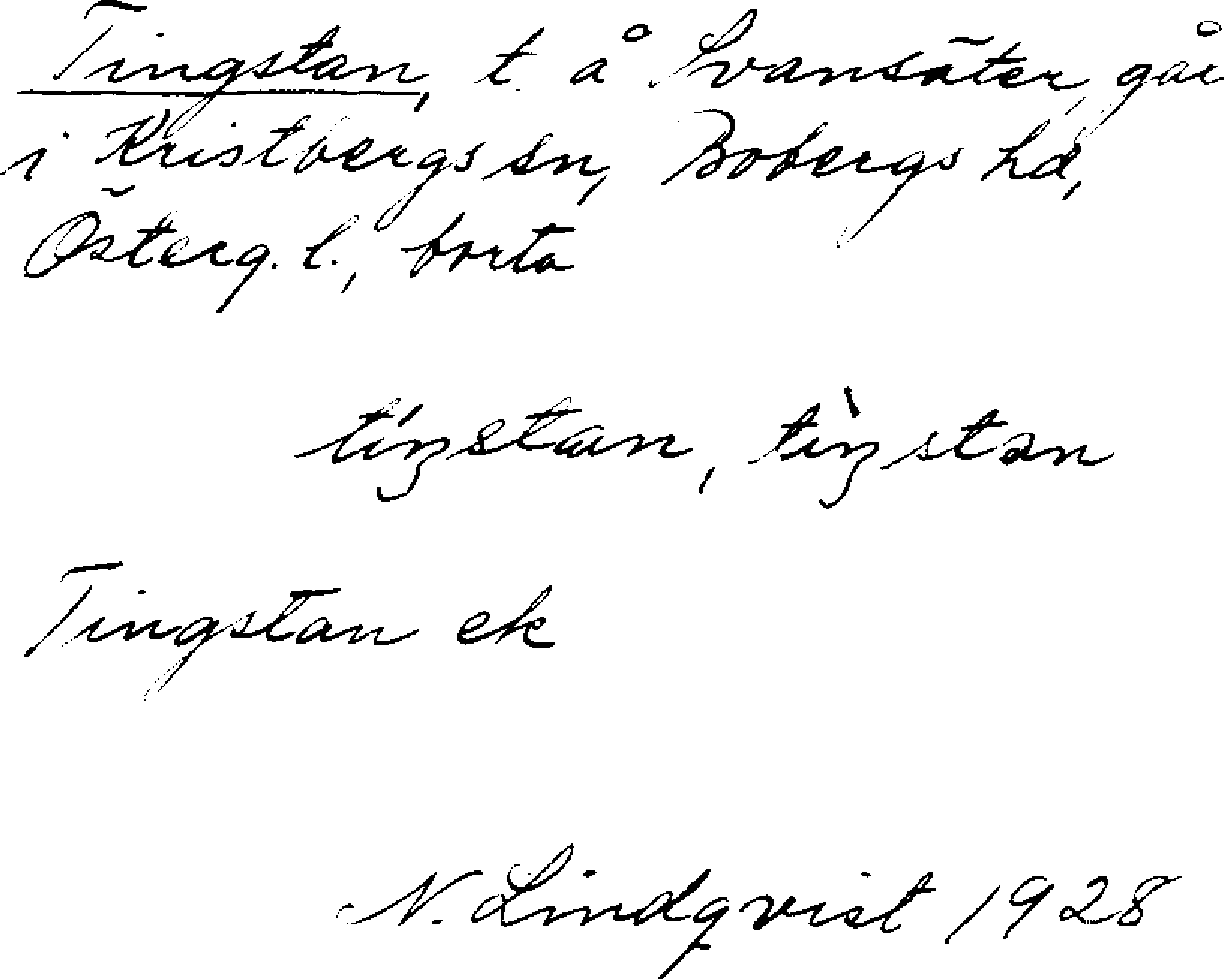 Tingstan, t. å Svansäter, går
i Kristbergs sn, Bobergs hd,
Österg. l., borta
tíŋstan, tìŋstan
Tingstan ek
N. Lindqvist 1928